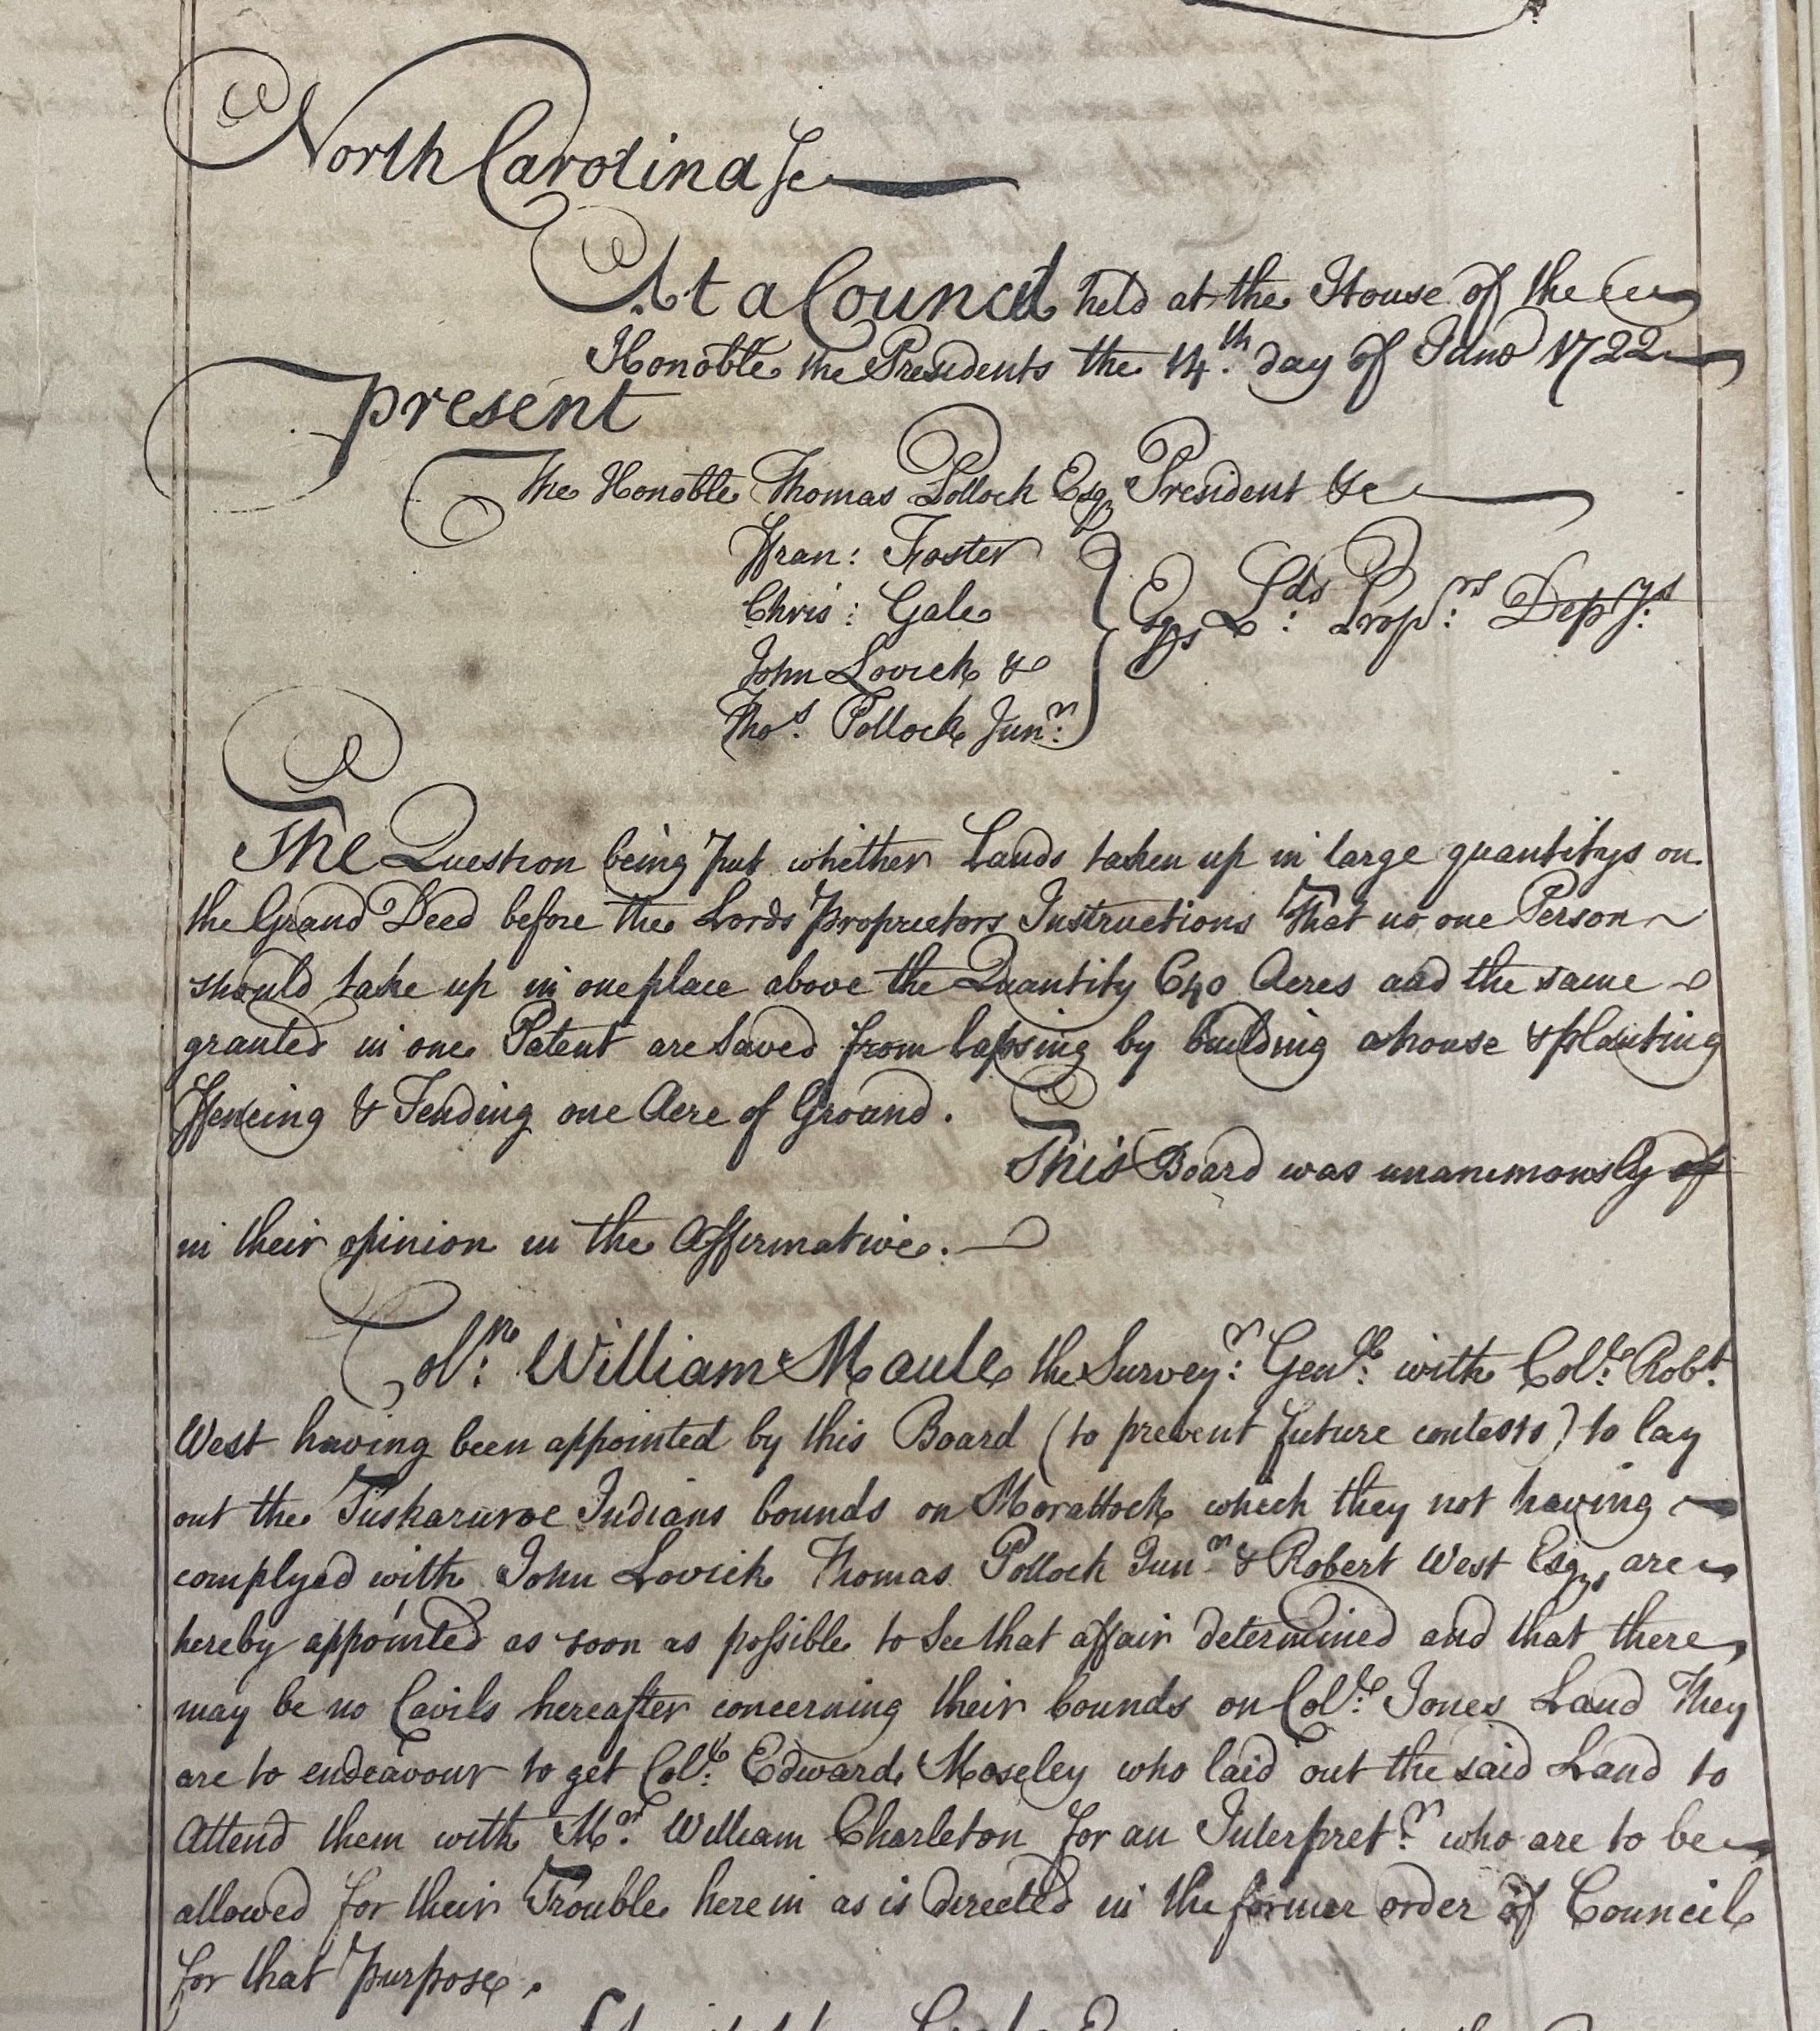 North Carolina Sc
At a Council held at the House of the
Honoble the Presidents the 14.th day of June 1722
present
The Honoble Thomas Pollock Esq President &c
ffran: Foster
Chris: Gale
John Lovick &
Thos. Pollock Junr:
Esqrs Lds: Propr:s Deptys:
The Question being put whither Lands taken up in large quantitys on
the Grand Deed before the Lords Proprietors Instructions That no one Person
should take up in one place above the Quantity 640 Acres and the same
granted in one Patent are Saved from lapsing by building a house & planting
ffencing & Tending one Acre of Ground.
This Board was unanimously of
in their opinion in the Affirmative.
Collo: William Maule the Surveyr: Genll: with Collo: Robt.
West having been appointed by this Board (to prevent future contests) to lay
out the Tuskaruroe Indians bounds on Morattock which they not having
complyed with John Lovick Thomas Pollock Junr & Robert West Esqrs are
hereby appointed as soon as possible to See that affair determined and that there
may be no Cavils hereafter concerning their bounds on Collo: Jones Land They
are to endeavour to get Collo: Edward Moseley who laid out the said Land to
Attend them with Mr: William Charleton for an Interpretr: who are to be
allowed for their Trouble herein as is directed in the former order of Council
for that Purpose.